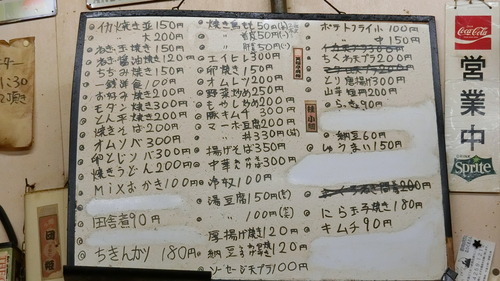 イカ焼き並150円
大200円
ねぎ玉焼き150円
ねぎ醤油焼き120円
ちぢみ焼き150円
一銭洋食100円
お好み焼き200円
モダン焼き300円
とん平焼き200円
焼きそば200円
オムソバ300円
卵とじソバ300円
焼きうどん200円
MiXおかき100円
田舎煮90円
ちきんカツ180円
焼き鳥もも50円
〃 皮50円
〃 肝50円
エイヒレ300円
卵焼き150円
オムレツ200円
野菜炒め250円
もやし炒め200円
豚キムチ300円
マーボ豆腐200円
〃 丼330円
揚げそば350円
中華あんかけそば300円
冷奴100円
湯豆腐150円
〃 100円
厚揚げ焼き120円
納豆お好み焼き120円
ソーセージ天プラ100円
ポテトフライ100円
〃 大150円
ちくわ天200円
とり唐揚げ300円
山芋短冊200円
納豆60円
しゅうまい150円
にら玉子焼き180円
キムチ90円
Coca-Cola
営業中
Sprite